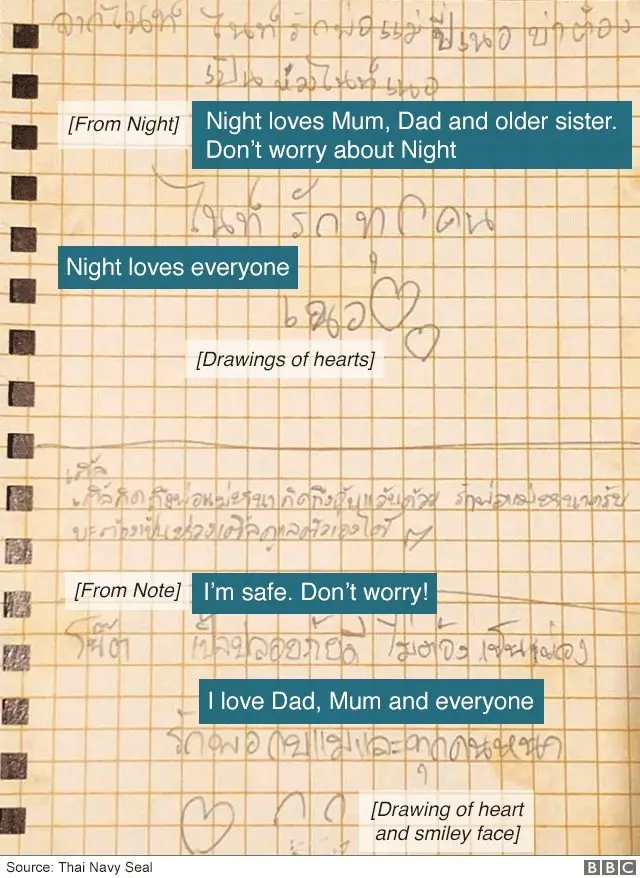 จากไนท์ ไนท์ รักพ่อแม่ พี่เนอ บ่าต้อง
เป็นห่วงไนท์เนอ
[From Night]
Night loves Mum, Dad and older sister.
Don't worry about Night
ไนท์ รัก ทุก คน
Night loves everyone
เนอ
[Drawings of hearts]
คิดถึง
บะต้องเป็นห่วง ดูแลตัวเองได้
[From Note]
I'm safe. Don't worry!
โน๊ต ไม่ต้อง
I love Dad, Mum and everyone
รักพ่อกับแม่และทุกคน
[Drawing of heart
and smiley face]
Source: Thai Navy Seal
BBC